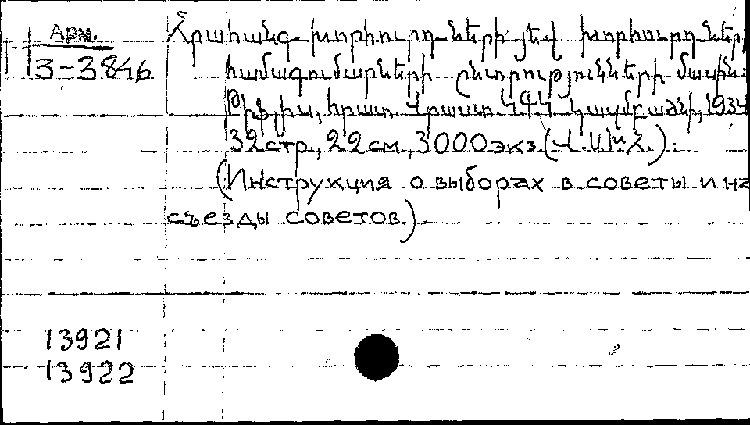 Арм.
3-3846
Հրահանգ խորհուրդների յեվ խորհուրդների
համագումարների ընտրությունների մասին.
Թիֆլիս, հրատ. Վրաստ ԿԳԿ կազմբաժնի, 1934
32 стр., 22 см, 3000 экз. (Վ.Ս.Խ.Հ.).
(Инструкция о выборах в советы и на
съезды советов.)
13921
13922